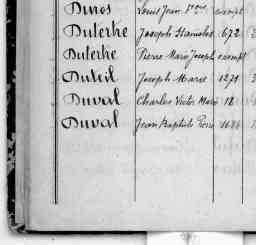 Duros Louis Jean exempt
Duterke Joseph Stanislas 672
Duterke Pierre Marie Joseph exempt
Duteil Joseph Marie 1271
Duval Charles Victor Marie 18
Duval Jean Baptiste